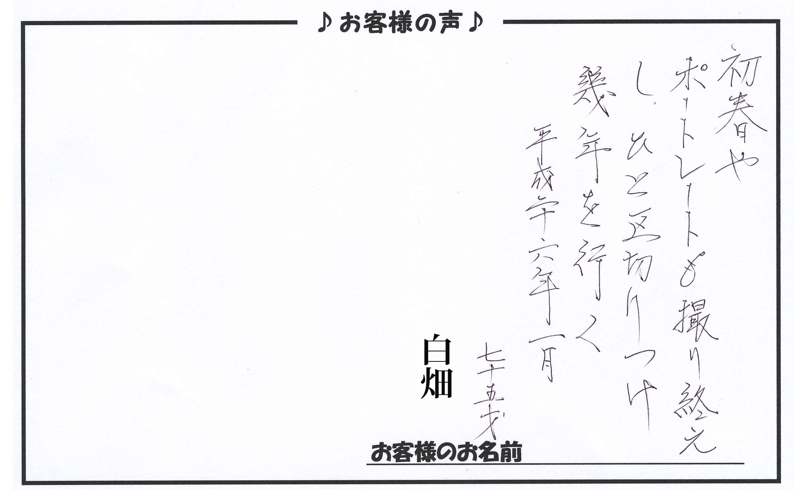 ♪お客様の声♪
初春や
ポートレートも撮り終え
し、ひと区切りつけ
幾年を行く
平成廿六年一月
七十五才
白畑
お客様のお名前